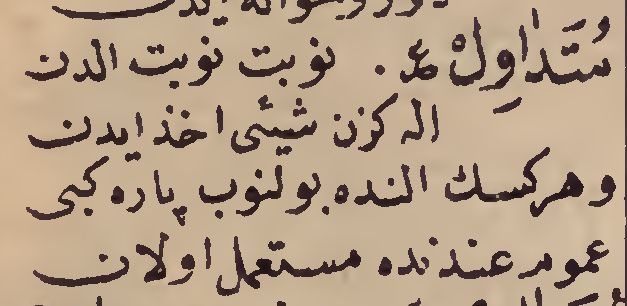 مُتَدَاوِلْ ع . نوبت نوبت الدن
اله كزن شيئى اخذ ايدن
وهر كسك النده بولنوب پاره كبى
عموم عندنده مستعمل اولان